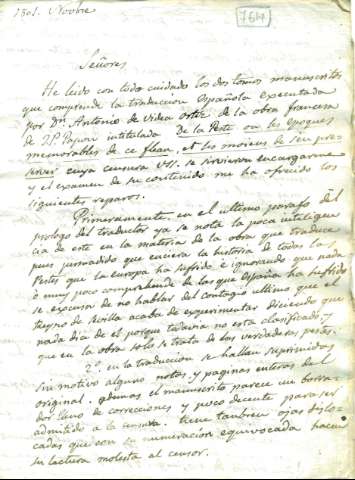 1801. Novbre
764
Señores
He leido con todo cuidado los dos tomos manuscritos
que comprende la traduccion Española executada
por Dn. Antonio de de la obra francesa
de J.P. Papon intitulada De la Peste ou les epoques
memorables de ce fleau, et les moiens de s'en pre-
server cuya censura VSS. se sirvieron encargarme
y el examen de su contenido me ha ofrecido los
siguientes reparos.
Primeramente, en el ultimo parafo del
prologo del traductor ya se nota la poca inteligen
cia de este en la materia de la obra que traduce
pues persuadido que encierra la historia de todas las
Pestes que la europa ha sufrido è ignorando que nada
ò muy poco comprehende de las que España ha sufrido
se escusa de no hablar del contagio ultimo que el
Reyno de sevilla acaba de experimentar diciendo que
nada dia de el porque todavia no esta clasificado, y
que en la obra solo se trata de las verdaderas pestes.
2o. en la traduccion se hallan suprimidas
sin motivo alguno notas y paginas enteras del
original. ademas el manuscrito parece un borra-
dor lleno de correcciones y poco decente para ser
admitido a la censura. tiene tambien ojas dislo-
cadas que con su numeracion equivocada hacen
su lectura molesta al censor.